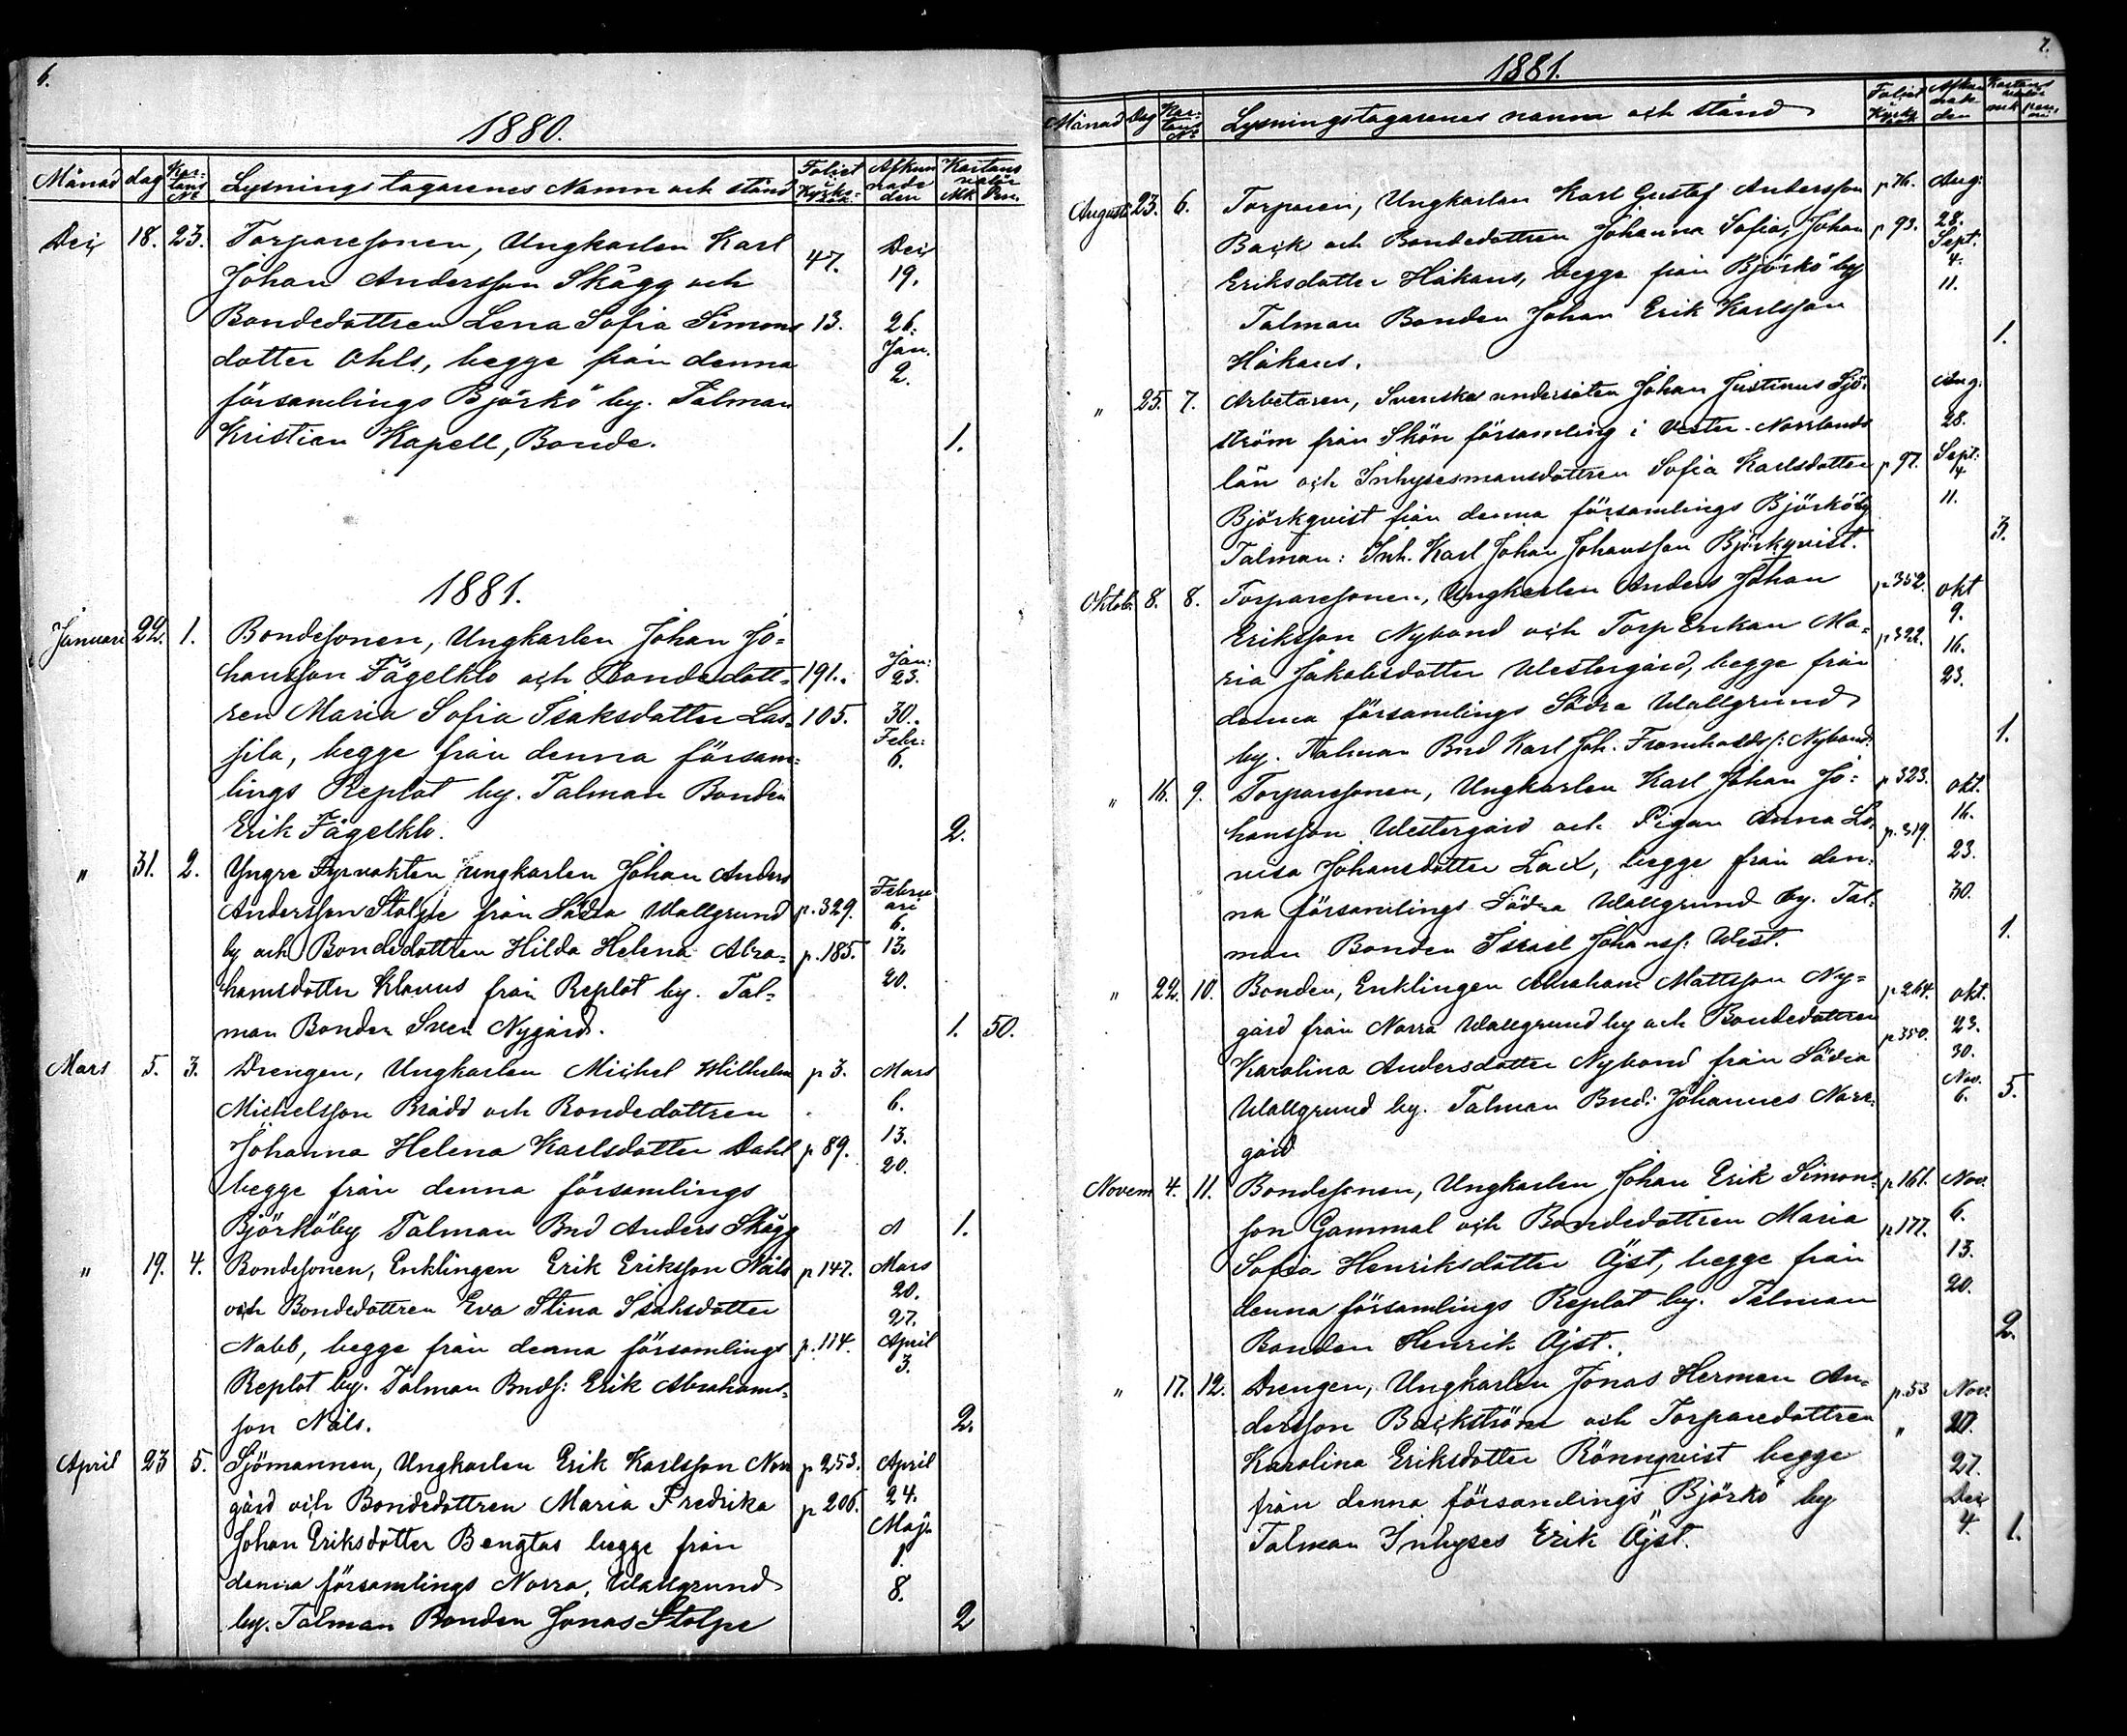 6.
1880.
Månad dag Kartans No Lysningstagarenes Namn och stånd Foliet i Kyrkobok Afkunnade den Kartans natur Mk Pen.
Dec 18. 23. Torparesonen, Ungkarlen Karl 47. Dec
Johan Andersson Skägg och 19.
Bondedottren Lena Sofia Simons 13. 26.
dotter Ohls, begge från denna Jan. 2.
församlings Björkö by. Talman
Kristian Kapell, Bonde. 1.
1881.
Januari 22. 1. Bondesonen, Ungkarlen Johan Jo-
hansson Fågelklo och Bondedott- 191. Jan: 23.
ren Maria Sofia Isaksdotter Las- 105. 30.
sila, begge från denna försam- Febr: 6.
lings Replot by. Talman Bonden
Erik Fågelklo. 2.
" 31. 2. Yngre Fyrvakten ungkarlen Johan Anders
Andersson Stolpe från Södra Wallgrund p. 329. Februari 6.
by och Bondedottren Hilda Helena Abra- p. 185. 13.
hamsdotter Klavus från Replot by. Tal- 20.
man Bonden Sven Nygård. 1. 50.
Mars 5. 3. Drengen, Ungkarlen Michel Wilhelm p 3. Mars
Michelsson Brådd och Bondedottren 6.
Johanna Helena Karlsdotter Dahl p 89. 13.
begge från denna församlings 20.
Björköby Talman Bnd Anders Skägg 1.
" 19. 4. Bondesonen, Enklingen Erik Eriksson Nåls p 147. Mars
och Bondedottren Eva Stina Isaksdotter 20. 27.
Nabb, begge från denna församlings p. 114. April
Replot by. Talman Bnds: Erik Abrahams- 3.
son Nåls. 2.
April 23 5. Sjömannen, Ungkarlen Erik Karlsson Norr p 253. April
gård och Bondedottren Maria Fredrika p 206. 24.
Johan Eriksdotter Bengtas begge från Maj 1.
denna församlings Norra Wallgrund 8.
by. Talman Bonden Jonas Stolpe 2
7.
1881.
Månad Dag Kartans No Lysningstagarenes namn och stånd Foliet i Kyrkobok Afkunnade den Kartans natur mk pen.
Augusti 23. 6. Torparen, Ungkarlen Karl Gustaf Andersson p 76. Aug:
Back och Bondedottren Johanna Sofia Johan p 93. 28. Sept.
Eriksdotter Håkans, begge från Björkö by 4. 11.
Talman Bonden Johan Erik Karlsson
Håkans. 1.
" 25. 7. Arbetaren, Svenska undersåten Johan Justinus Sjö- Aug.
ström från Skön församling i Vester-Norrlands 28.
län och Inhysesmansdottren Sofia Karlsdotter p 97. Sept. 4
Björkqvist från denna församlings Björköby 11.
Talman: Inh. Karl Johan Johansson Björkqvist. 3.
Oktob. 8. 8. Torparesonen, Ungkarlen Anders Johan p 352. okt
Eriksson Nybond och Torp Enkan Ma- p 322. 9. 16.
ria Jakobsdotter Westergård, begge från 23.
denna församlings Södra Wallgrund
by. Talman Bnd Karl Joh. Fromholds s: Nybond. 1.
" 16. 9. Torparesonen, Ungkarlen Karl Johan Jo- p 323. okt.
hansson Westergård och Pigan Anna Lo- p. 319. 16.
visa Johansdotter Lax, begge från den- 23.
na församlings Södra Wallgrund by. Tal- 30.
man Bonden Israel Johanss: West. 1.
" 22. 10. Bonden, Enklingen Abraham Mattsson Ny- p 264. okt.
gård från Norra Wallgrund by och Bondedottren p 350. 23.
Karolina Andersdotter Nybond från Södra 30.
Wallgrund by. Talman Bnd: Johannes Norr- Nov. 6. 5.
gård
Novem 4. 11. Bondesonen, Ungkarlen Johan Erik Simons- p 161. Nov.
son Gammal och Bondedottren Maria p 177. 6.
Sofia Henriksdotter Öjst, begge från 13.
denna församlings Replot by. Talman 20.
Bonden Henrik Öjst. 2.
" 17. 12. Drengen, Ungkarlen Jonas Herman An- p. 53 Nov.
dersson Backström och Torparedottren " 20.
Karolina Eriksdotter Rönnqvist begge 27.
från denna församlings Björkö by Dec
Talman Inhyses Erik Öjst. 4. 1.